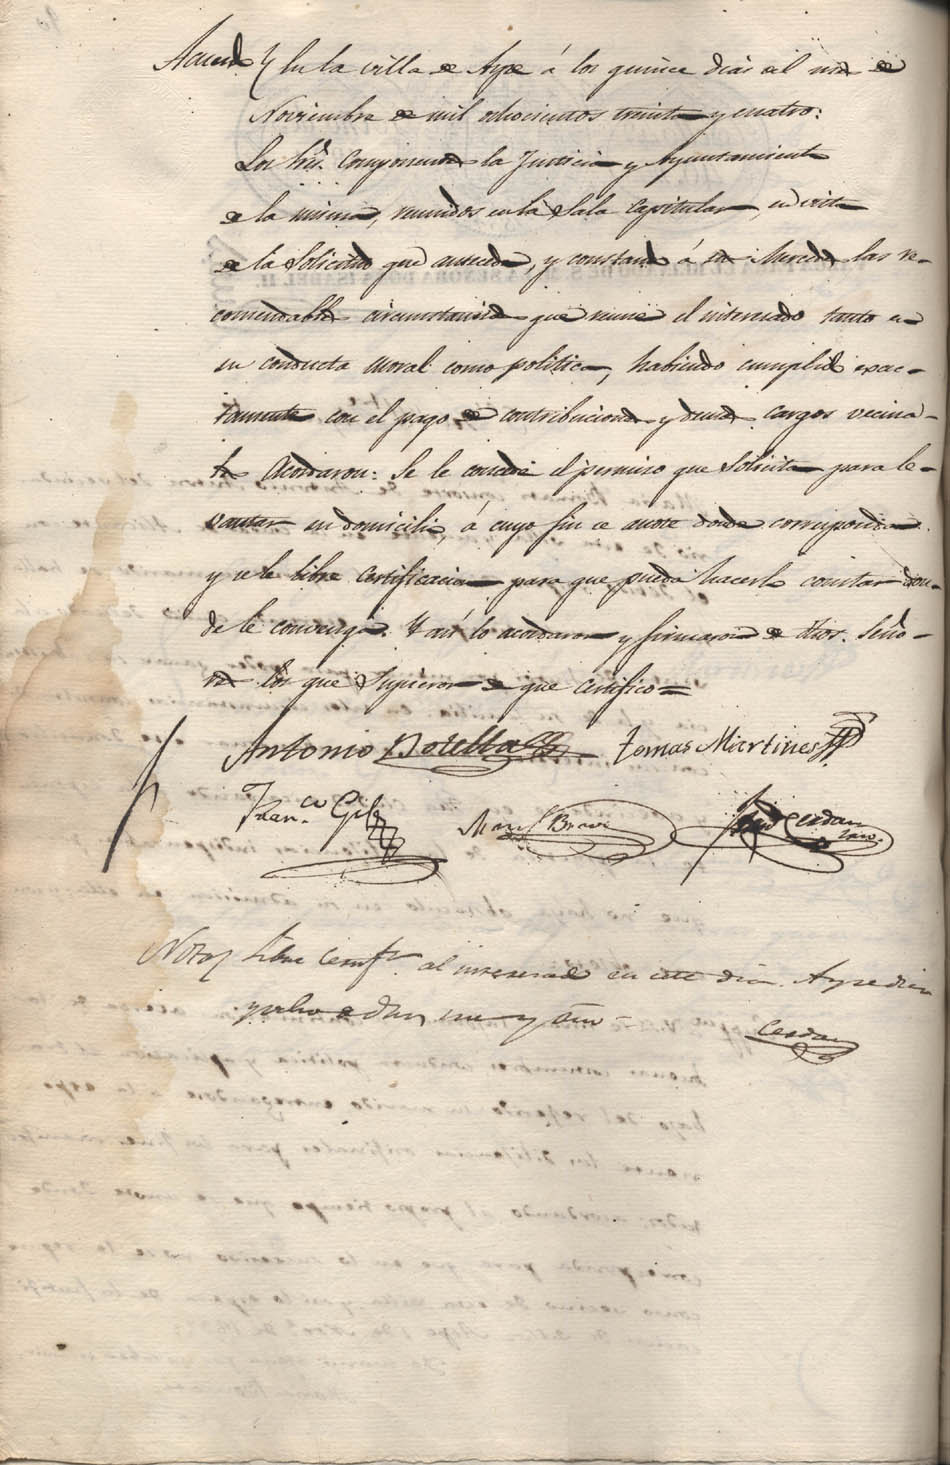 Acuerdo / En la villa de Aspe á los quince dias del mes de
Noviembre de mil ochocientos treinta y cuatro:
Los Sres. Componen la Justicia y Ayuntamiento
de la misma, reunidos en la Sala Capitular, en vista
de la Solicitud que antecede, y constando á sus Mercedes las re-
comendables circunstancias que reune el interesado tanto en
su conducta moral como politica, habiendo cumplido exac-
tamente con el pago de contribuciones y demas cargos vecina-
les Acordaron: Se le concede el permiso que Solicita para le-
vantar su domicilio, á cuyo fin se anote donde corresponda
y se le libre Certificacion para que pueda hacerlo constar don-
de le convenga. Y así lo acordaron y firmaron de dhos. Seño-
res los que Supieron de que Certifico =
Antonio Botella Tomas Martines
Franco. Gil Man.l Bravo Cerdan
Nota / Libre Certifn. al interesado en este dia. Aspe diez
y ocho de dhos mes y año =
Cerdan